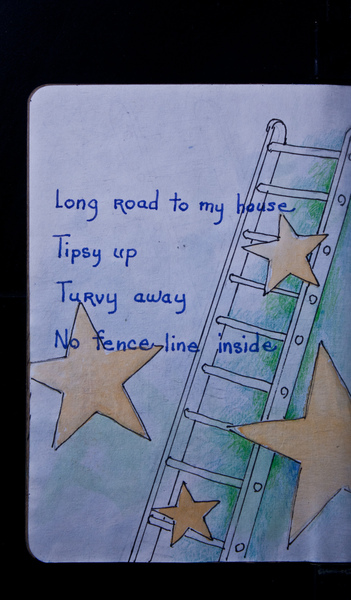 Long Road to my house
Tipsy up
Turvy away
No fence line inside